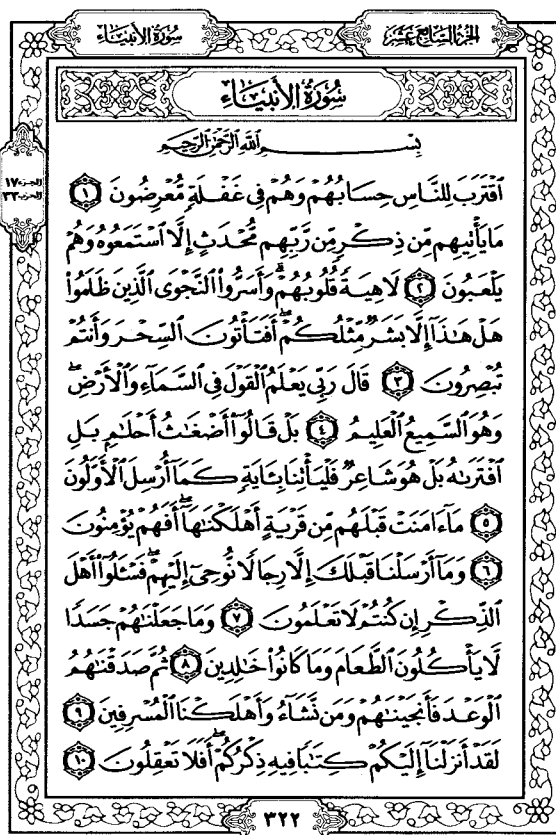 الجزء السابع عشر
سورة الأنبياء
سُورَةُ الأَنبِيَاءِ
بِسْمِ اللَّهِ الرَّحْمَٰنِ الرَّحِيمِ
الجزء ١٧
الحزب ٣٣
ٱقْتَرَبَ لِلنَّاسِ حِسَابُهُمْ وَهُمْ فِي غَفْلَةٍ مُّعْرِضُونَ ١
مَا يَأْتِيهِم مِّن ذِكْرٍ مِّن رَّبِّهِم مُّحْدَثٍ إِلَّا ٱسْتَمَعُوهُ وَهُمْ
يَلْعَبُونَ ٢ لَاهِيَةً قُلُوبُهُمْ ۗ وَأَسَرُّوا۟ ٱلنَّجْوَى ٱلَّذِينَ ظَلَمُوا۟
هَلْ هَٰذَآ إِلَّا بَشَرٌ مِّثْلُكُمْ ۖ أَفَتَأْتُونَ ٱلسِّحْرَ وَأَنتُمْ
تُبْصِرُونَ ٣ قَالَ رَبِّي يَعْلَمُ ٱلْقَوْلَ فِي ٱلسَّمَآءِ وَٱلْأَرْضِ ۖ
وَهُوَ ٱلسَّمِيعُ ٱلْعَلِيمُ ٤ بَلْ قَالُوٓا۟ أَضْغَٰثُ أَحْلَٰمٍۭ بَلِ
ٱفْتَرَىٰهُ بَلْ هُوَ شَاعِرٌ فَلْيَأْتِنَا بِـَٔايَةٍ كَمَآ أُرْسِلَ ٱلْأَوَّلُونَ
٥ مَآ ءَامَنَتْ قَبْلَهُم مِّن قَرْيَةٍ أَهْلَكْنَٰهَآ ۖ أَفَهُمْ يُؤْمِنُونَ
٦ وَمَآ أَرْسَلْنَا قَبْلَكَ إِلَّا رِجَالًا نُّوحِىٓ إِلَيْهِمْ ۖ فَسْـَٔلُوٓا۟ أَهْلَ
ٱلذِّكْرِ إِن كُنتُمْ لَا تَعْلَمُونَ ٧ وَمَا جَعَلْنَٰهُمْ جَسَدًا
لَّا يَأْكُلُونَ ٱلطَّعَامَ وَمَا كَانُوا۟ خَٰلِدِينَ ٨ ثُمَّ صَدَقْنَٰهُمُ
ٱلْوَعْدَ فَأَنجَيْنَٰهُمْ وَمَن نَّشَآءُ وَأَهْلَكْنَا ٱلْمُسْرِفِينَ ٩
لَقَدْ أَنزَلْنَآ إِلَيْكُمْ كِتَٰبًا فِيهِ ذِكْرُكُمْ ۖ أَفَلَا تَعْقِلُونَ ١٠
٣٢٢